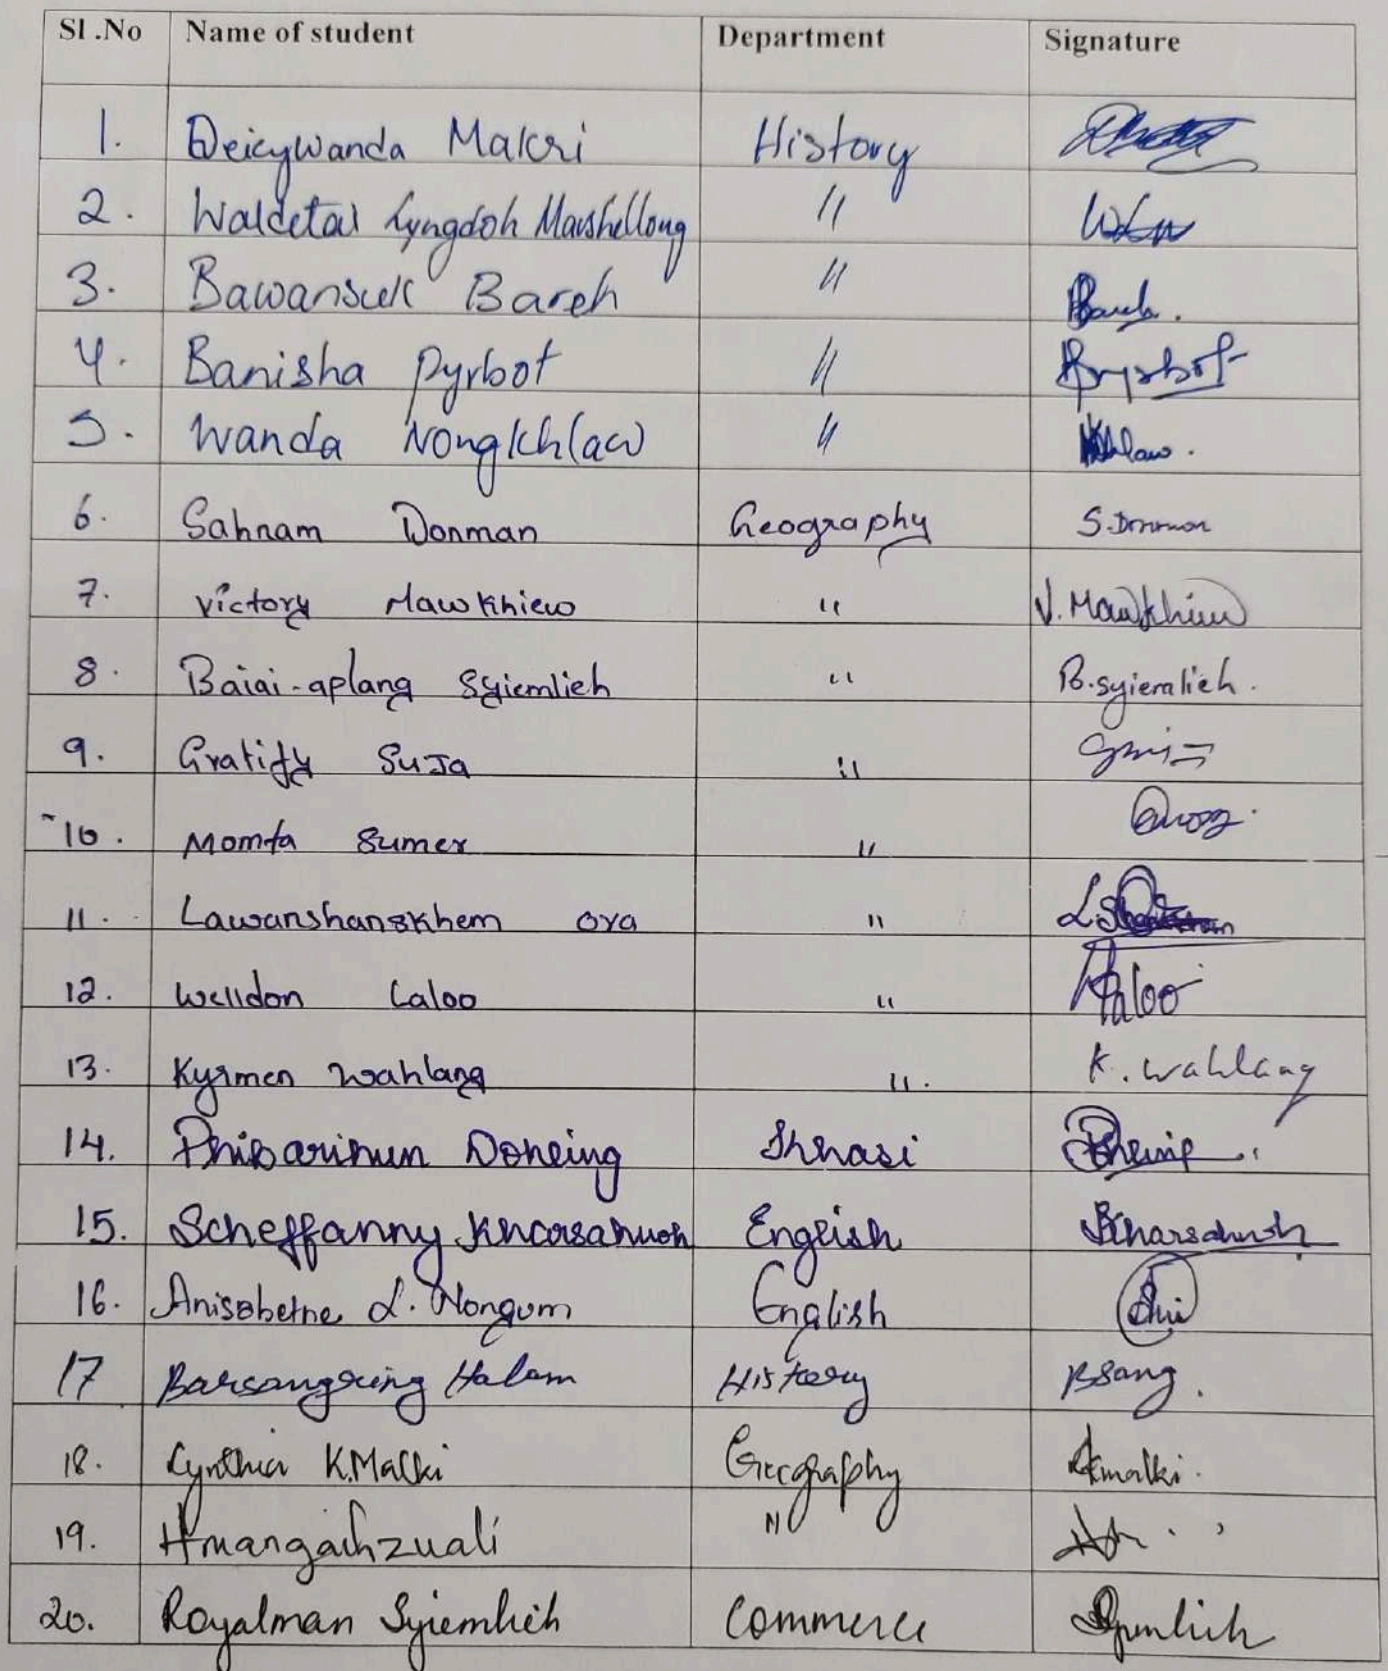 Sl .No Name of student Department Signature
1. Deicywanda Makri History
2. Waldetal Lyngdoh Marshellong "
3. Bawansuk Bareh " Bareh.
4. Banisha Pyrbot " Bpyrbot
5. Wanda Nongkhlaw " Khlaw.
6. Sahnam Donman Geography S.Donman
7. Victory Mawkhiew " V. Mawkhiew
8. Baiai-aplang Syiemlieh " B.syiemlieh.
9. Gratify Suja "
10. Momta Sumer "
11. Lawanshanskhem Oya "
12. Welldon Laloo " Laloo
13. Kyrmen Wahlang ". K. Wahlang
14. Phibarihun Doheing Khasi Dheing
15. Scheffanny Kharsahnoh English SKharsahnoh
16. Anisabethe L. Nongum English Ani
17 Barsangsing Halam History BSang.
18. Cynthia K.Malki Geography Ckmalki.
19. Hmangaihzuali "
20. Royalman Syiemlieh Commerce Syiemlieh